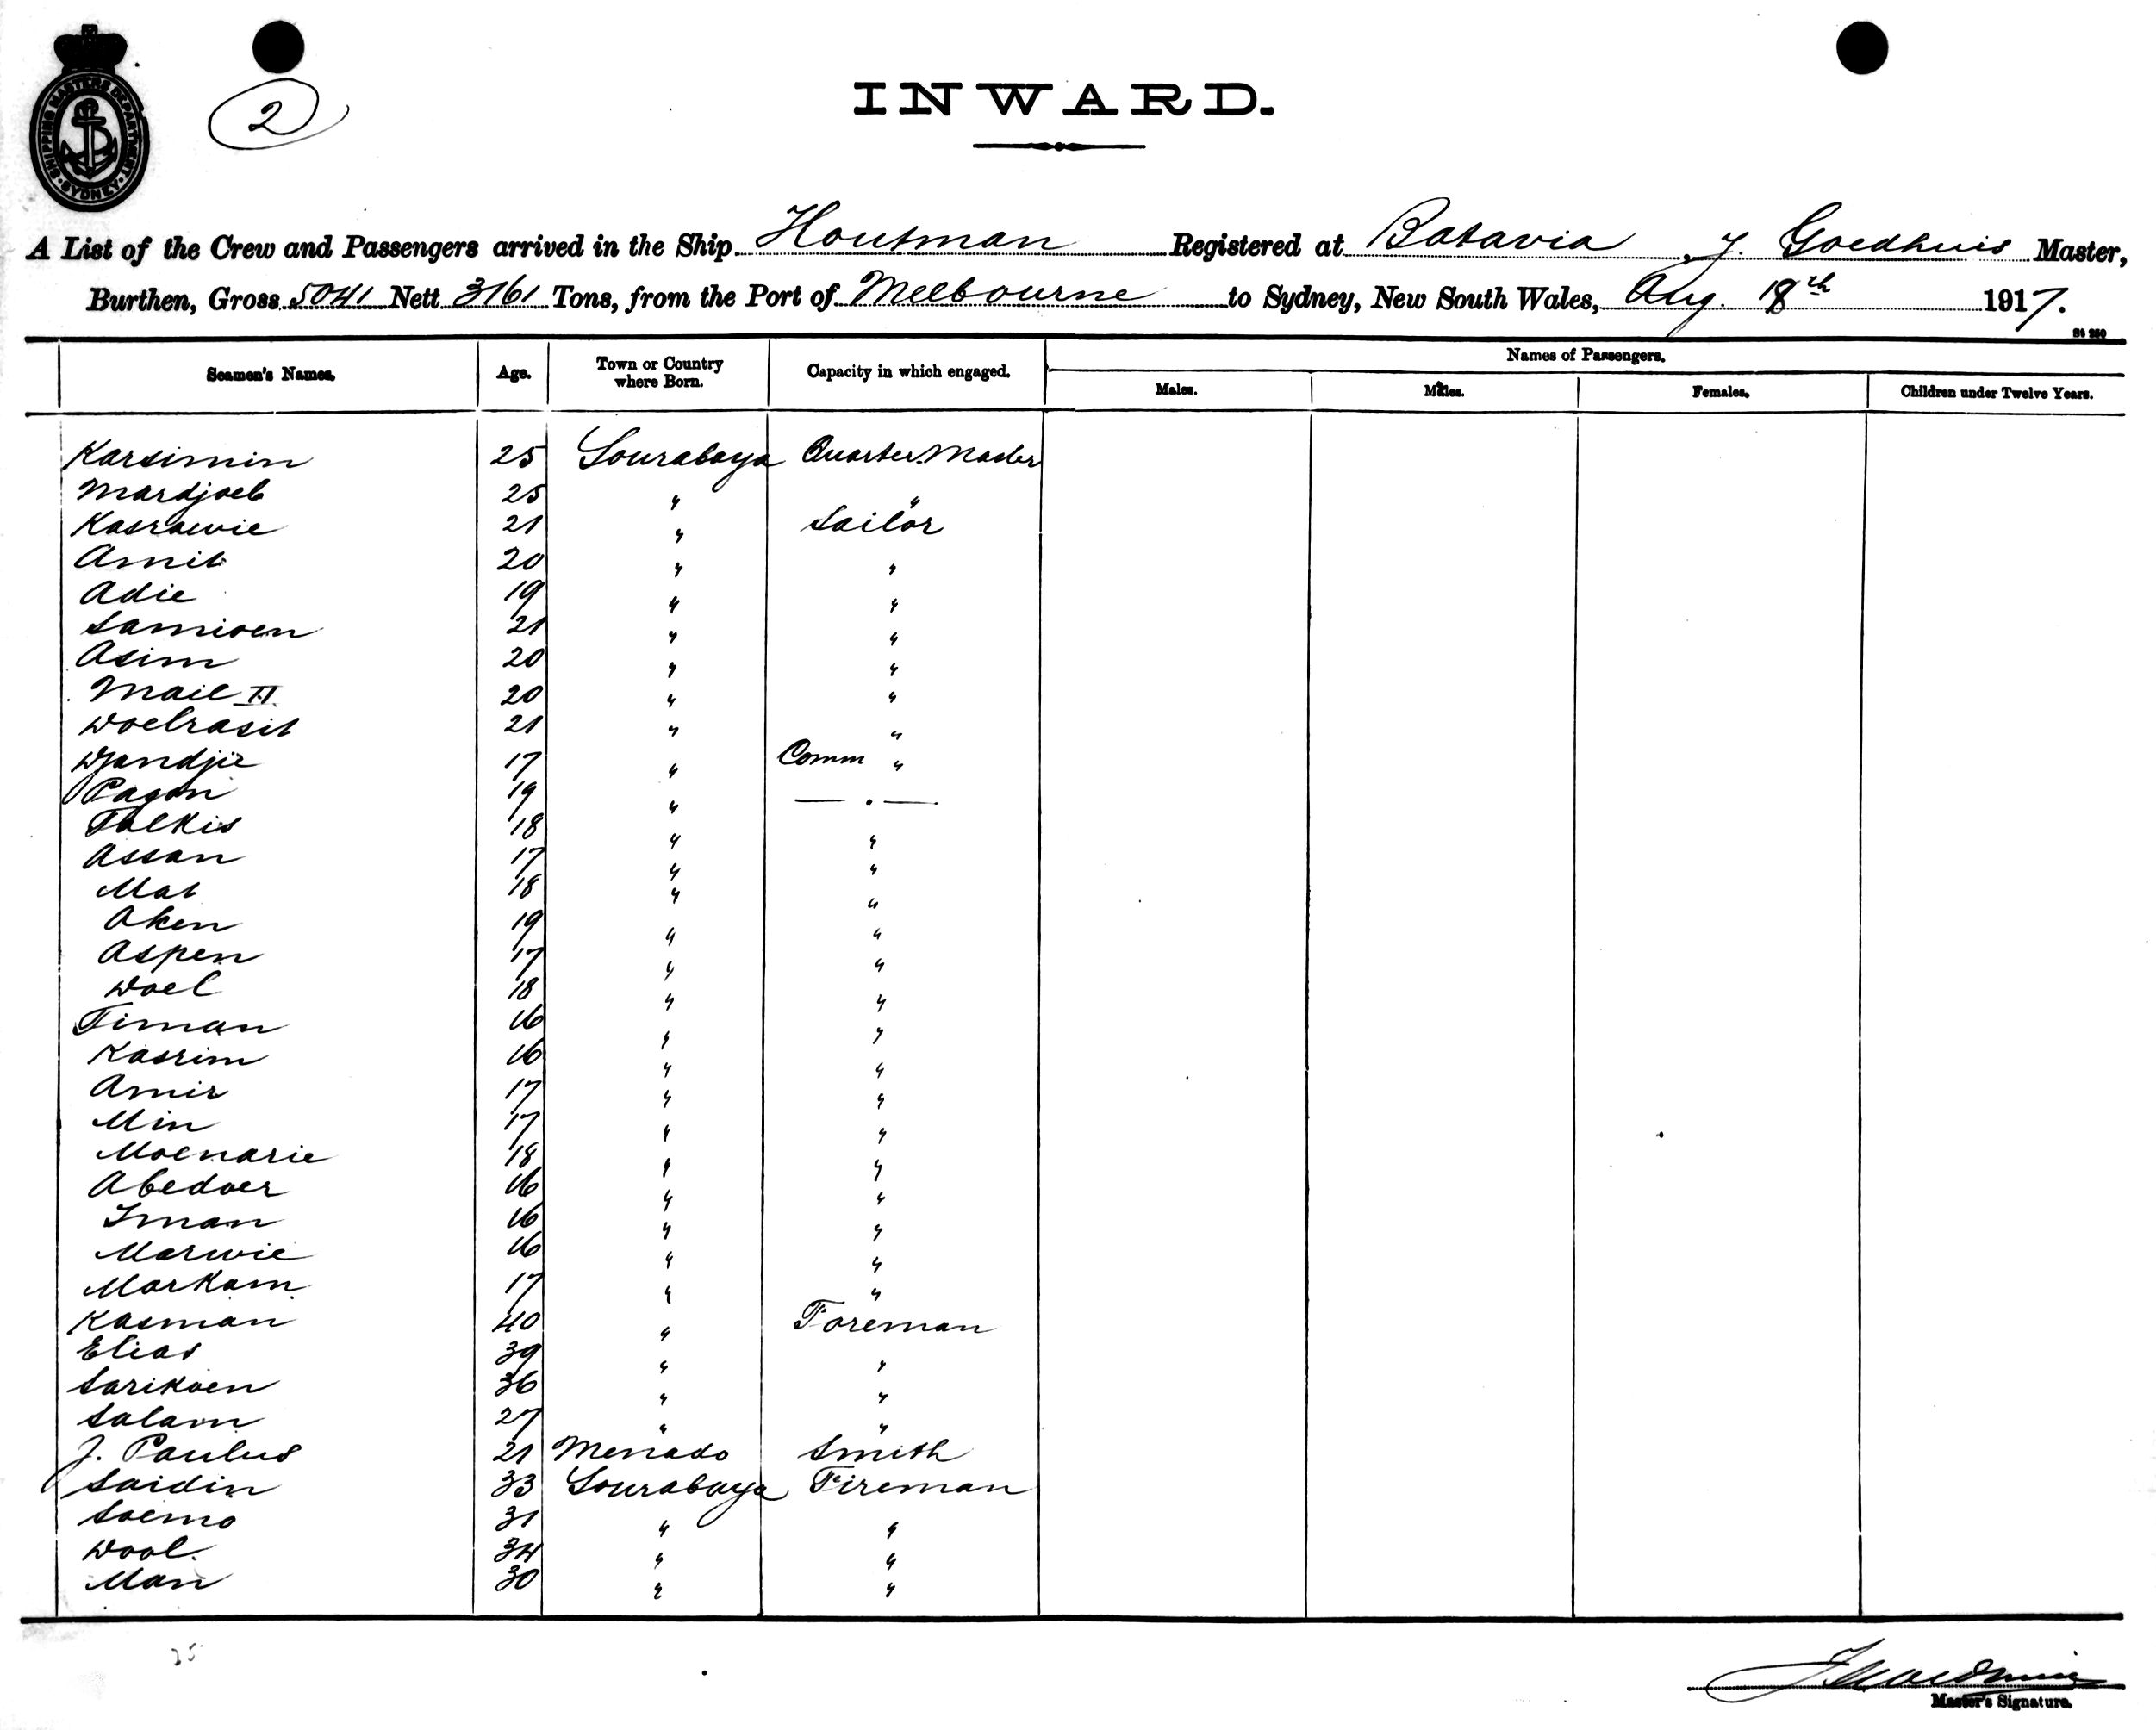 SHIPPING MASTERS DEPARTMENT SYDNEY
2
INWARD.
A List of the Crew and Passengers arrived in the Ship Houtman Registered at Batavia, J. Goedhuis Master,
Burthen, Gross 5041 Nett 3161 Tons, from the Port of Melbourne to Sydney, New South Wales, Aug. 18th 1917.
St 250
Seamen's Names. Age. Town or Country where Born. Capacity in which engaged. Names of Passengers.
Males. Males. Females. Children under Twelve Years.
Karsimin 25 Sourabaya Quarter Master
Mardjoeb 25 " "
Kasrawie 21 " Sailor
Amit 20 " "
Adie 19 " "
Samioen 21 " "
Asim 20 " "
Mail II 20 " "
Doelrasit 21 " "
Djandjir 17 " Comm "
Pagon 19 " — . —
Tolkis 18 " "
Assan 17 " "
Mat 18 " "
Aken 19 " "
Aspen 17 " "
Doel 18 " "
Timan 16 " "
Kasrim 16 " "
Amir 17 " "
Min 17 " "
Moenarie 18 " "
Abedoer 16 " "
Iman 16 " "
Marwie 16 " "
Markam 17 " "
Kasman 40 " Foreman
Elias 39 " "
Sarikoen 36 " "
Salam 27 " "
J. Paulus 21 Menado Smith
Saidin 33 Sourabaya Fireman
Soemo 31 " "
Dool. 34 " "
Man 30 " "
25
J Goedhuis
Master's Signature.